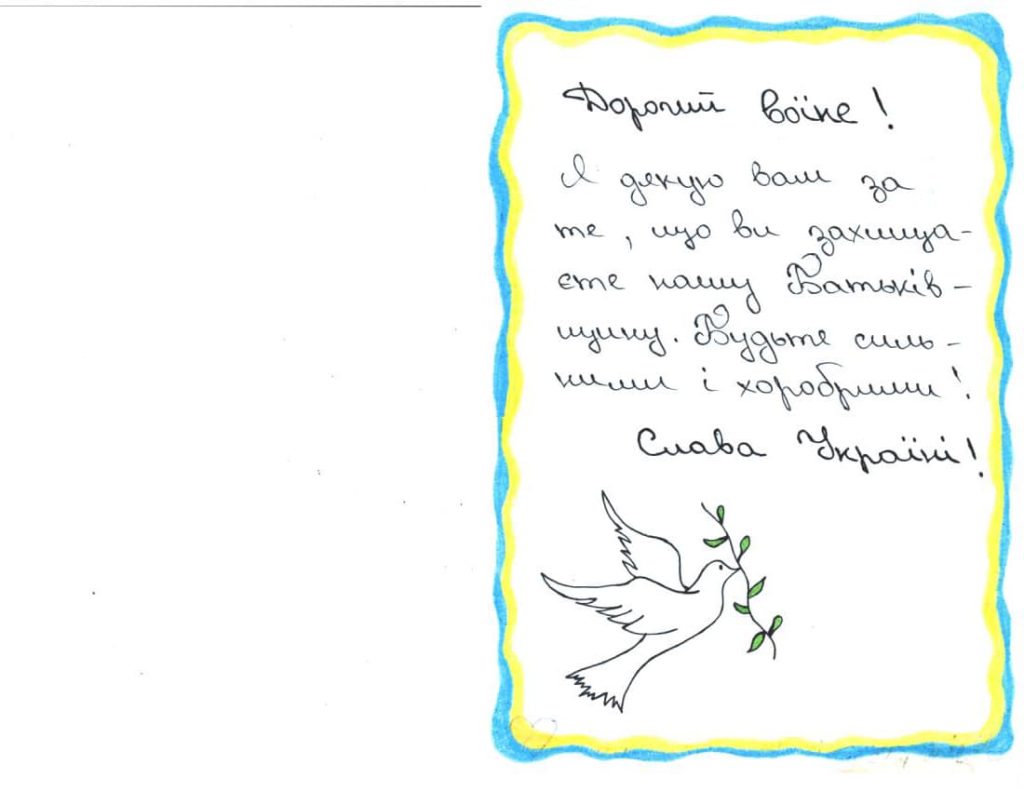 Дорогий воїне!
Я дякую вам за
те, що ви захища-
єте нашу Батьків-
щину. Будьте силь-
ними і хоробрими!
Слава Україні!